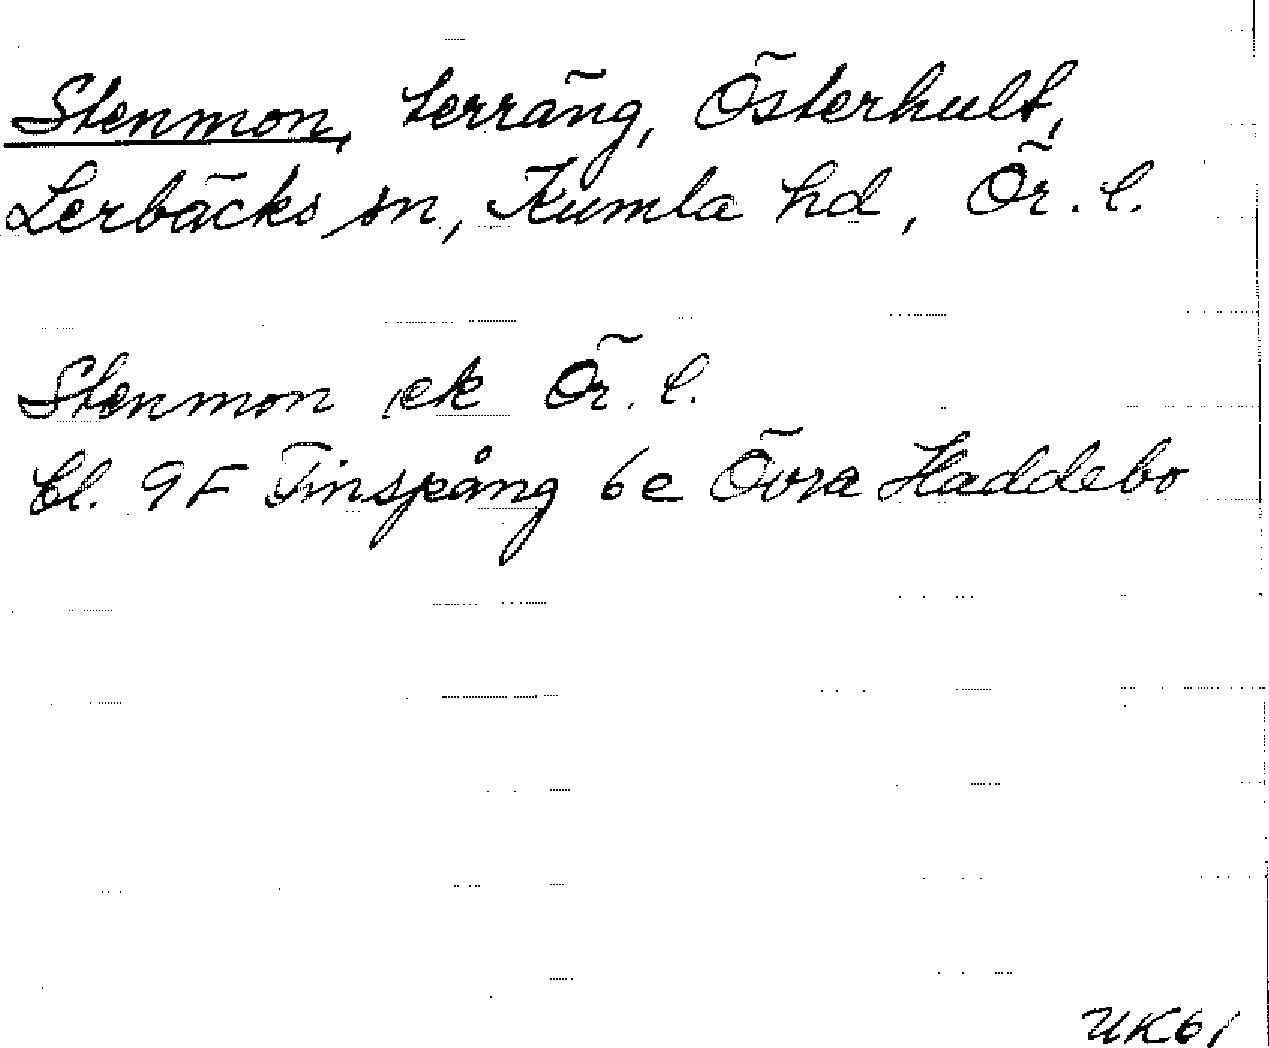 Stenmon, terräng, Österhult,
Lerbäcks sn, Kumla hd, Ör. l.
Stenmon ek Ör. l.
bl. 9F Finspång 6e Övra Haddebo
UK61